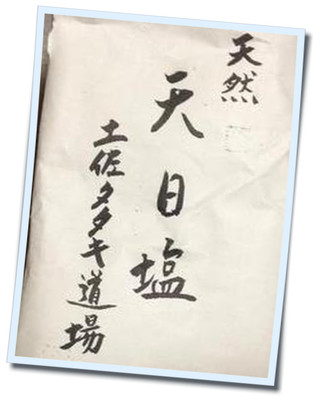 天然
天日塩
土佐タタキ道場